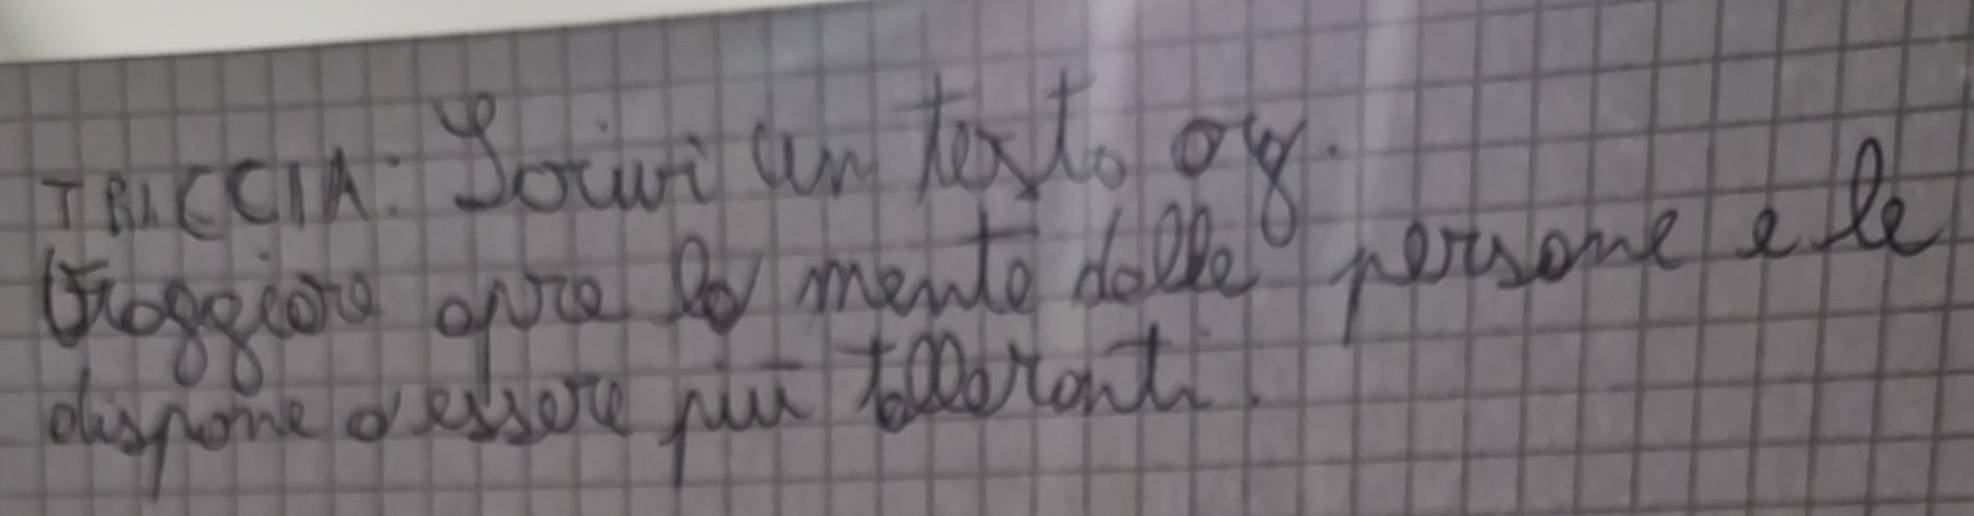 TRACCIA: Scrivi un testo arg.
Viaggiare apre la mente delle persone e le
dispone a essere più tolleranti.